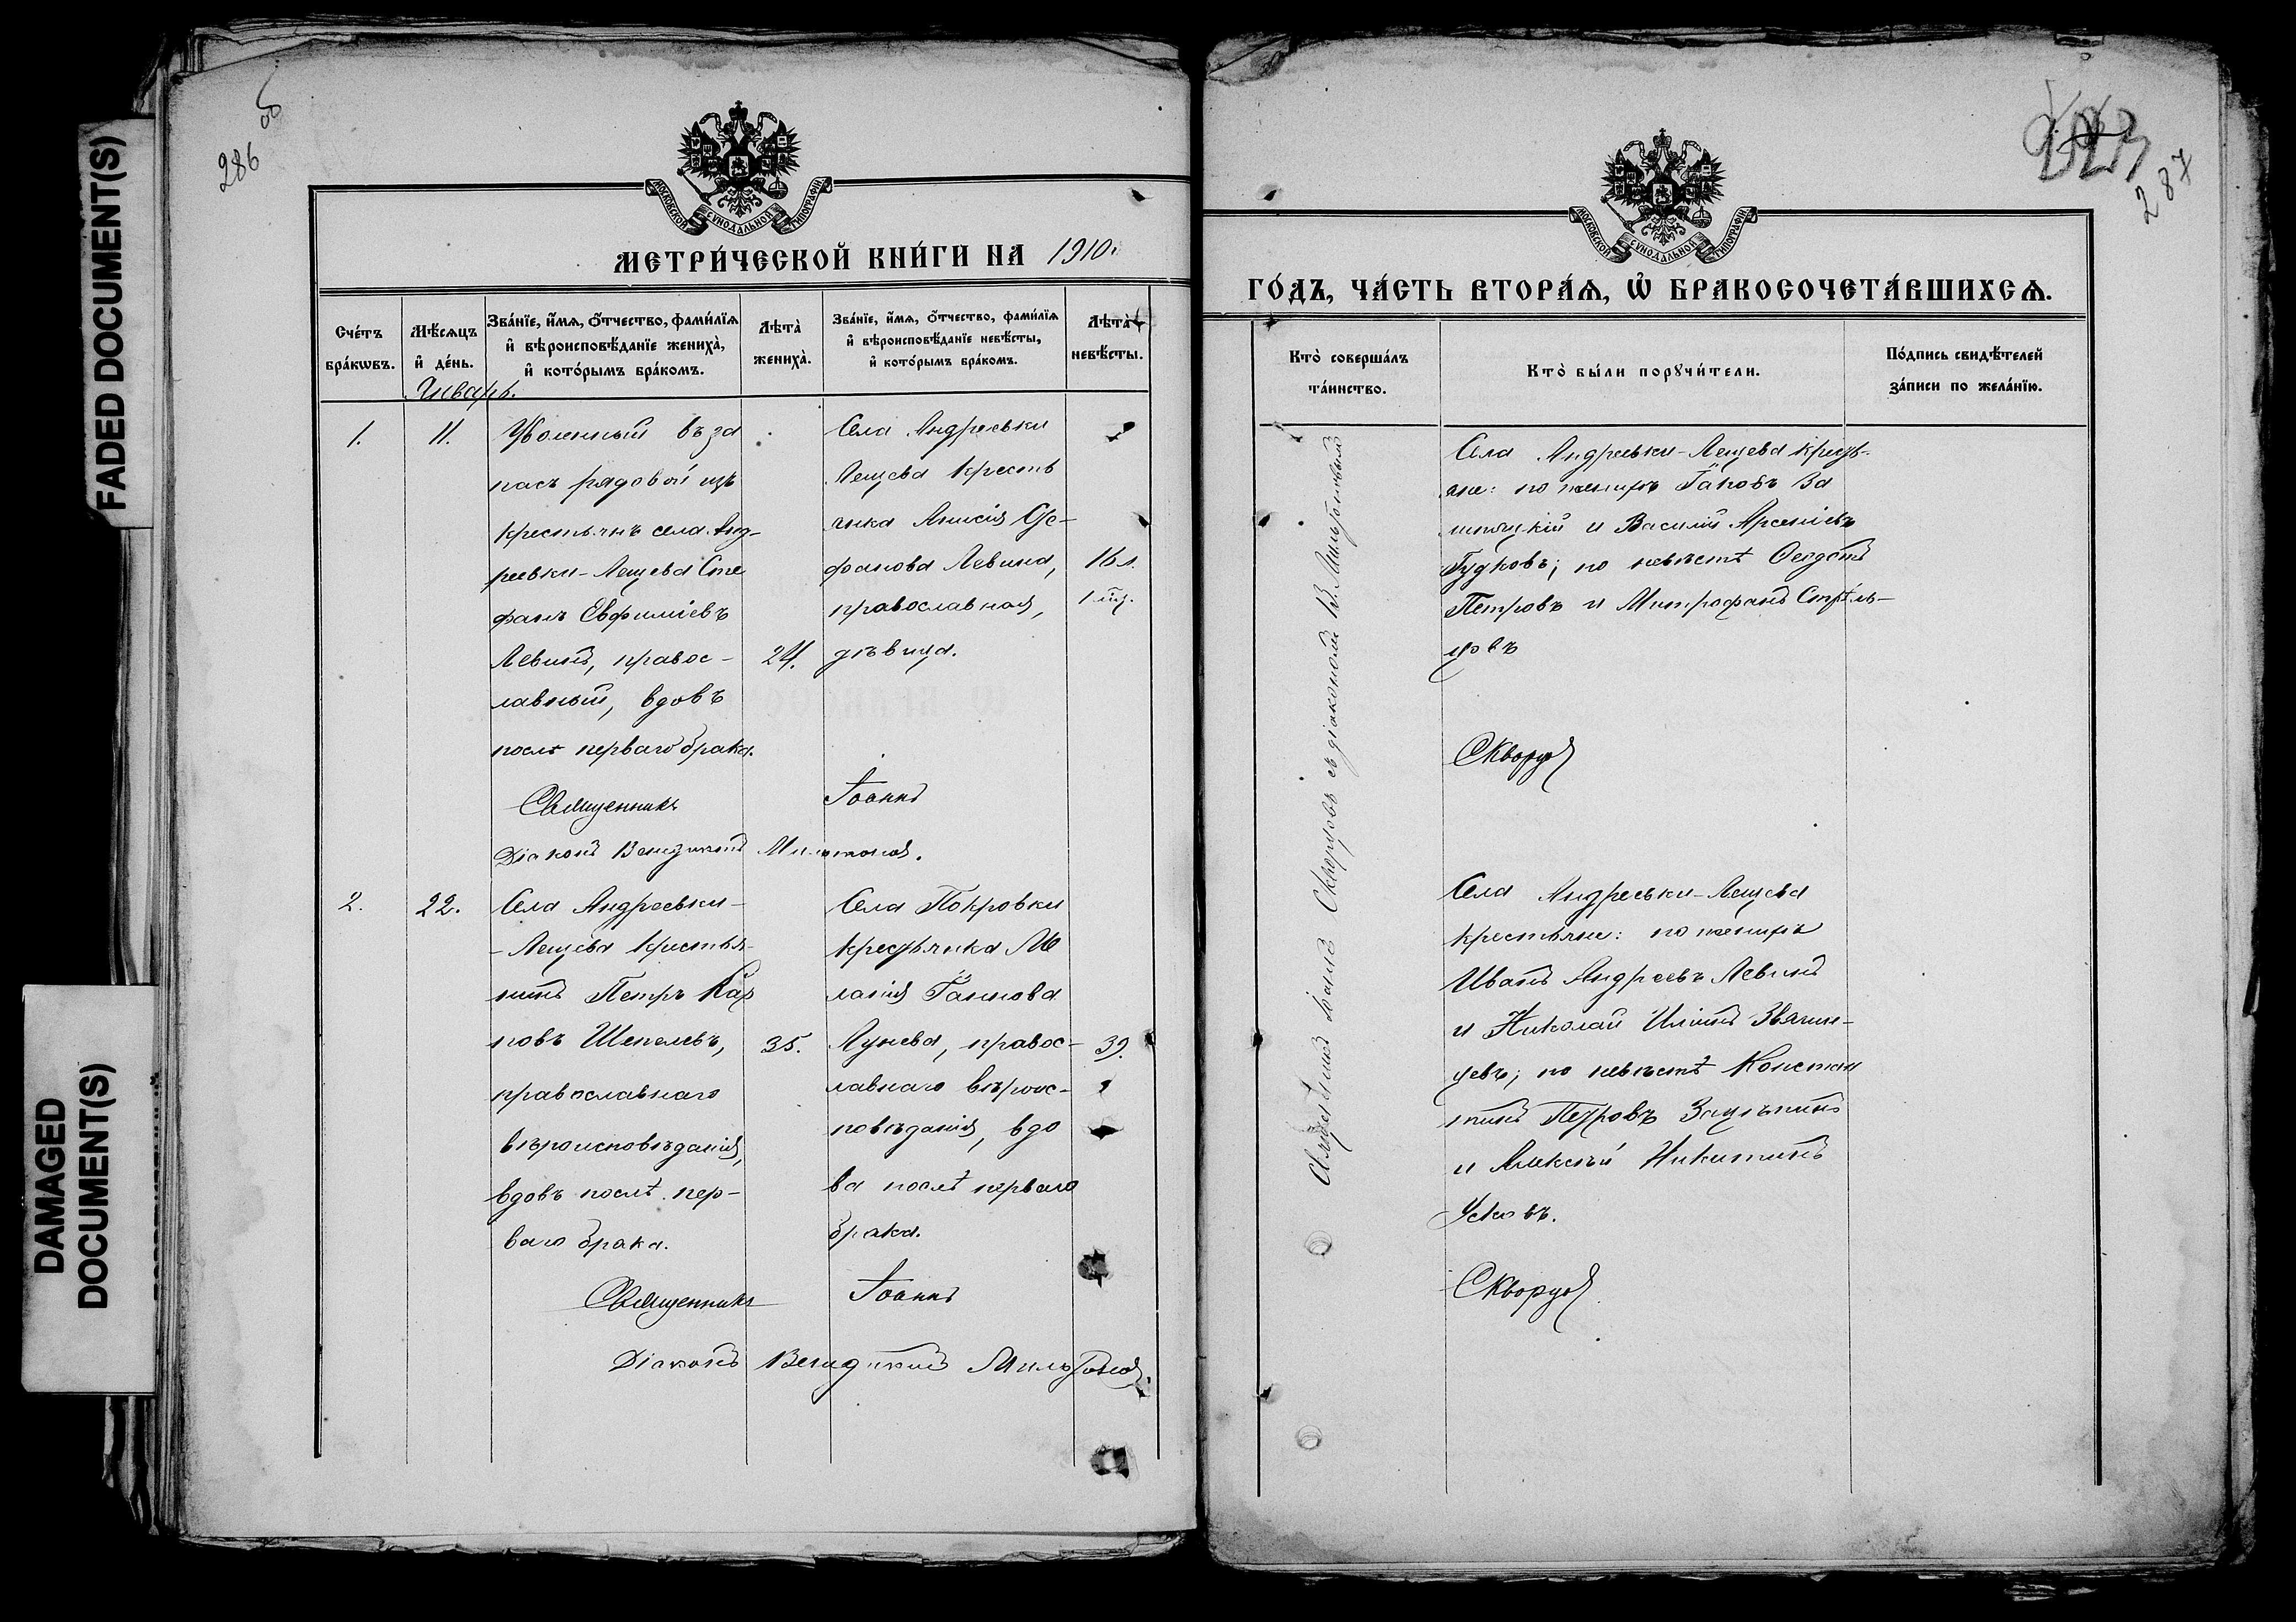 FADED DOCUMENT(S)
DAMAGED
DOCUMENT(S)
286 об
МОСКОВСКОЙ СѴНОДАЛЬНОЙ ТИПОГРАФІИ
МЕТРИ́ЧЕСКОЙ КНИ́ГИ НА 1910 г.
Сче́тъ бра́кѡвъ.
Мѣ́сяцъ и҆ де́нь.
Зва́нїе, и҆́мѧ, ѻ҆́тчество, фами́лїѧ и҆ вѣроисповѣ́данїе жениха̀, и҆ кото́рымъ бра́комъ.
Лѣта̀ жениха̀.
Зва́нїе, и҆́мѧ, ѻ҆́тчество, фами́лїѧ и҆ вѣроисповѣ́данїе невѣ́сты, и҆ кото́рымъ бра́комъ.
Лѣта̀ невѣ́сты.
Январь.
1.
11.
Уволенный въ за
пасъ рядовой изъ
крестьянъ села Анд-
реевки-Лещева Сте
фанъ Евфиміевъ
Левинъ, правос-
лавный, вдовъ
послѣ перваго брака.
24.
Села Андреевки
Лещева кресть
янка Анисія Сте-
фанова Левина,
православная,
дѣвица.
16 л.
Священникъ Іоаннъ
Діаконъ Венедиктъ Мильтоновъ.
2.
22.
Села Андреевки-
-Лещева крестья-
нинъ Петръ Кар
повъ Шепелевъ,
православнаго
вѣроисповѣданія,
вдовъ послѣ пер-
ваго брака.
35.
Села Покровки
крестьянка Ме
ланія Іаковова
Лунева, правос-
лавнаго вѣроис-
повѣданія, вдо
ва послѣ перваго
брака.
39.
Священникъ Іоаннъ
Діаконъ Венедиктъ Мильтоновъ.
287
МОСКОВСКОЙ СѴНОДАЛЬНОЙ ТИПОГРАФІИ
ГО́ДЪ, ЧА́СТЬ ВТОРА́Ѧ, Ѽ БРАКОСОЧЕТА́ВШИХСѦ.
Кто̀ соверша́лъ та́инство.
Кто̀ бы́ли порꙋчи́тели.
По́дпись свидѣ́телей за́писи по жела́нїю.
Священникъ Іоаннъ Скворцовъ съ діакономъ В. Мильтоновымъ
Села Андреевки-Лещева кресть-
яне: по женихѣ Іаковъ За
и Василій Арсеніевъ
Гудковъ; по невѣстѣ Ѳеодотъ
Петровъ и Митрофанъ Стрѣль-
цовъ
Скворцовъ
Села Андреевки-Лещева
крестьяне: по женихѣ
Иванъ Андреевъ Левинъ
и Николай Ильинъ Звягин-
цевъ; по невѣстѣ Констан
тинъ Петровъ Зацѣпинъ
и Алексѣй Никитинъ
Усковъ.
Скворцовъ